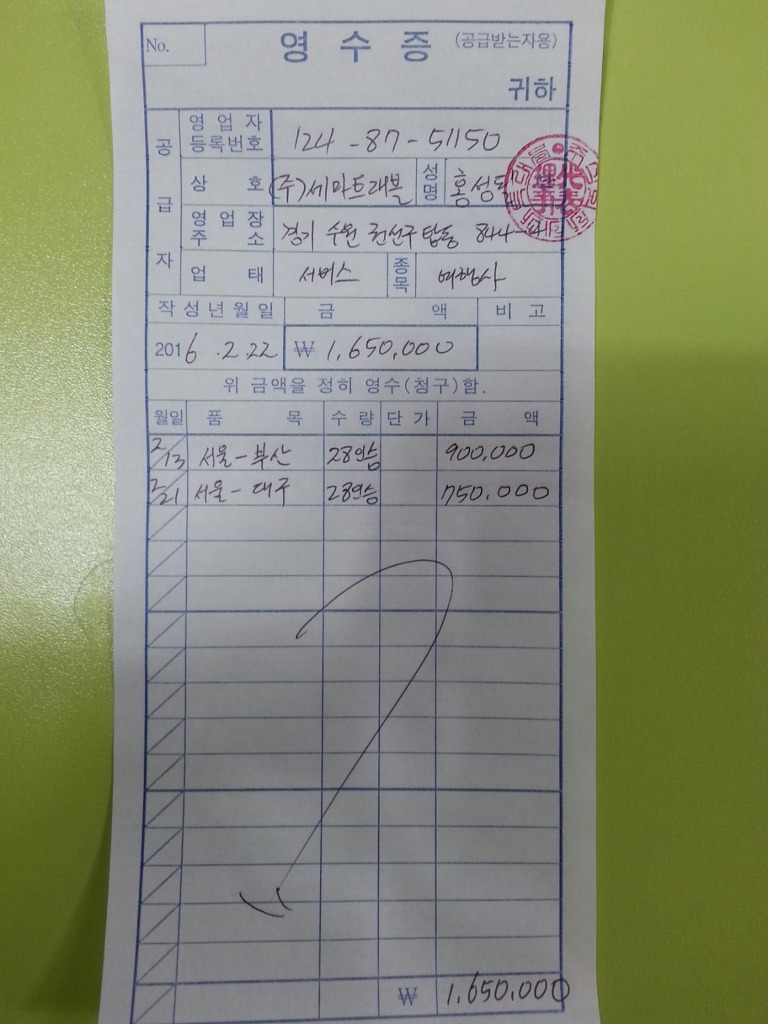 No. 영 수 증 (공급받는자용)
귀하
공 급 자
영 업 자 등록번호 124-87-51150
상 호 (주)세마트래블 성명 홍성
영 업 장 주 소 경기 수원 권선구 탑동 844-4
업 태 서비스 종목 여행사
작성년월일 금 액 비 고
2016.2.22 ₩ 1,650,000
위 금액을 정히 영수(청구)함.
월일 품 목 수 량 단 가 금 액
2/13 서울-부산 28인승 900,000
2/21 서울-대구 28인승 750,000
₩ 1,650,000